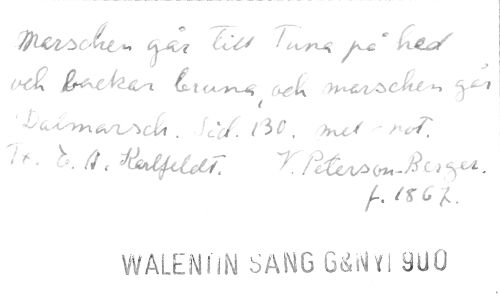 Marschen går till Tuna på hed
och backar bruna, och marschen går
Dalmarsch. Sid. 130. mel-not.
Tr. E. A. Karlfeldt. V. Peterson-Berger.
f. 1867.
WALENTIN SANG G&NYI 900